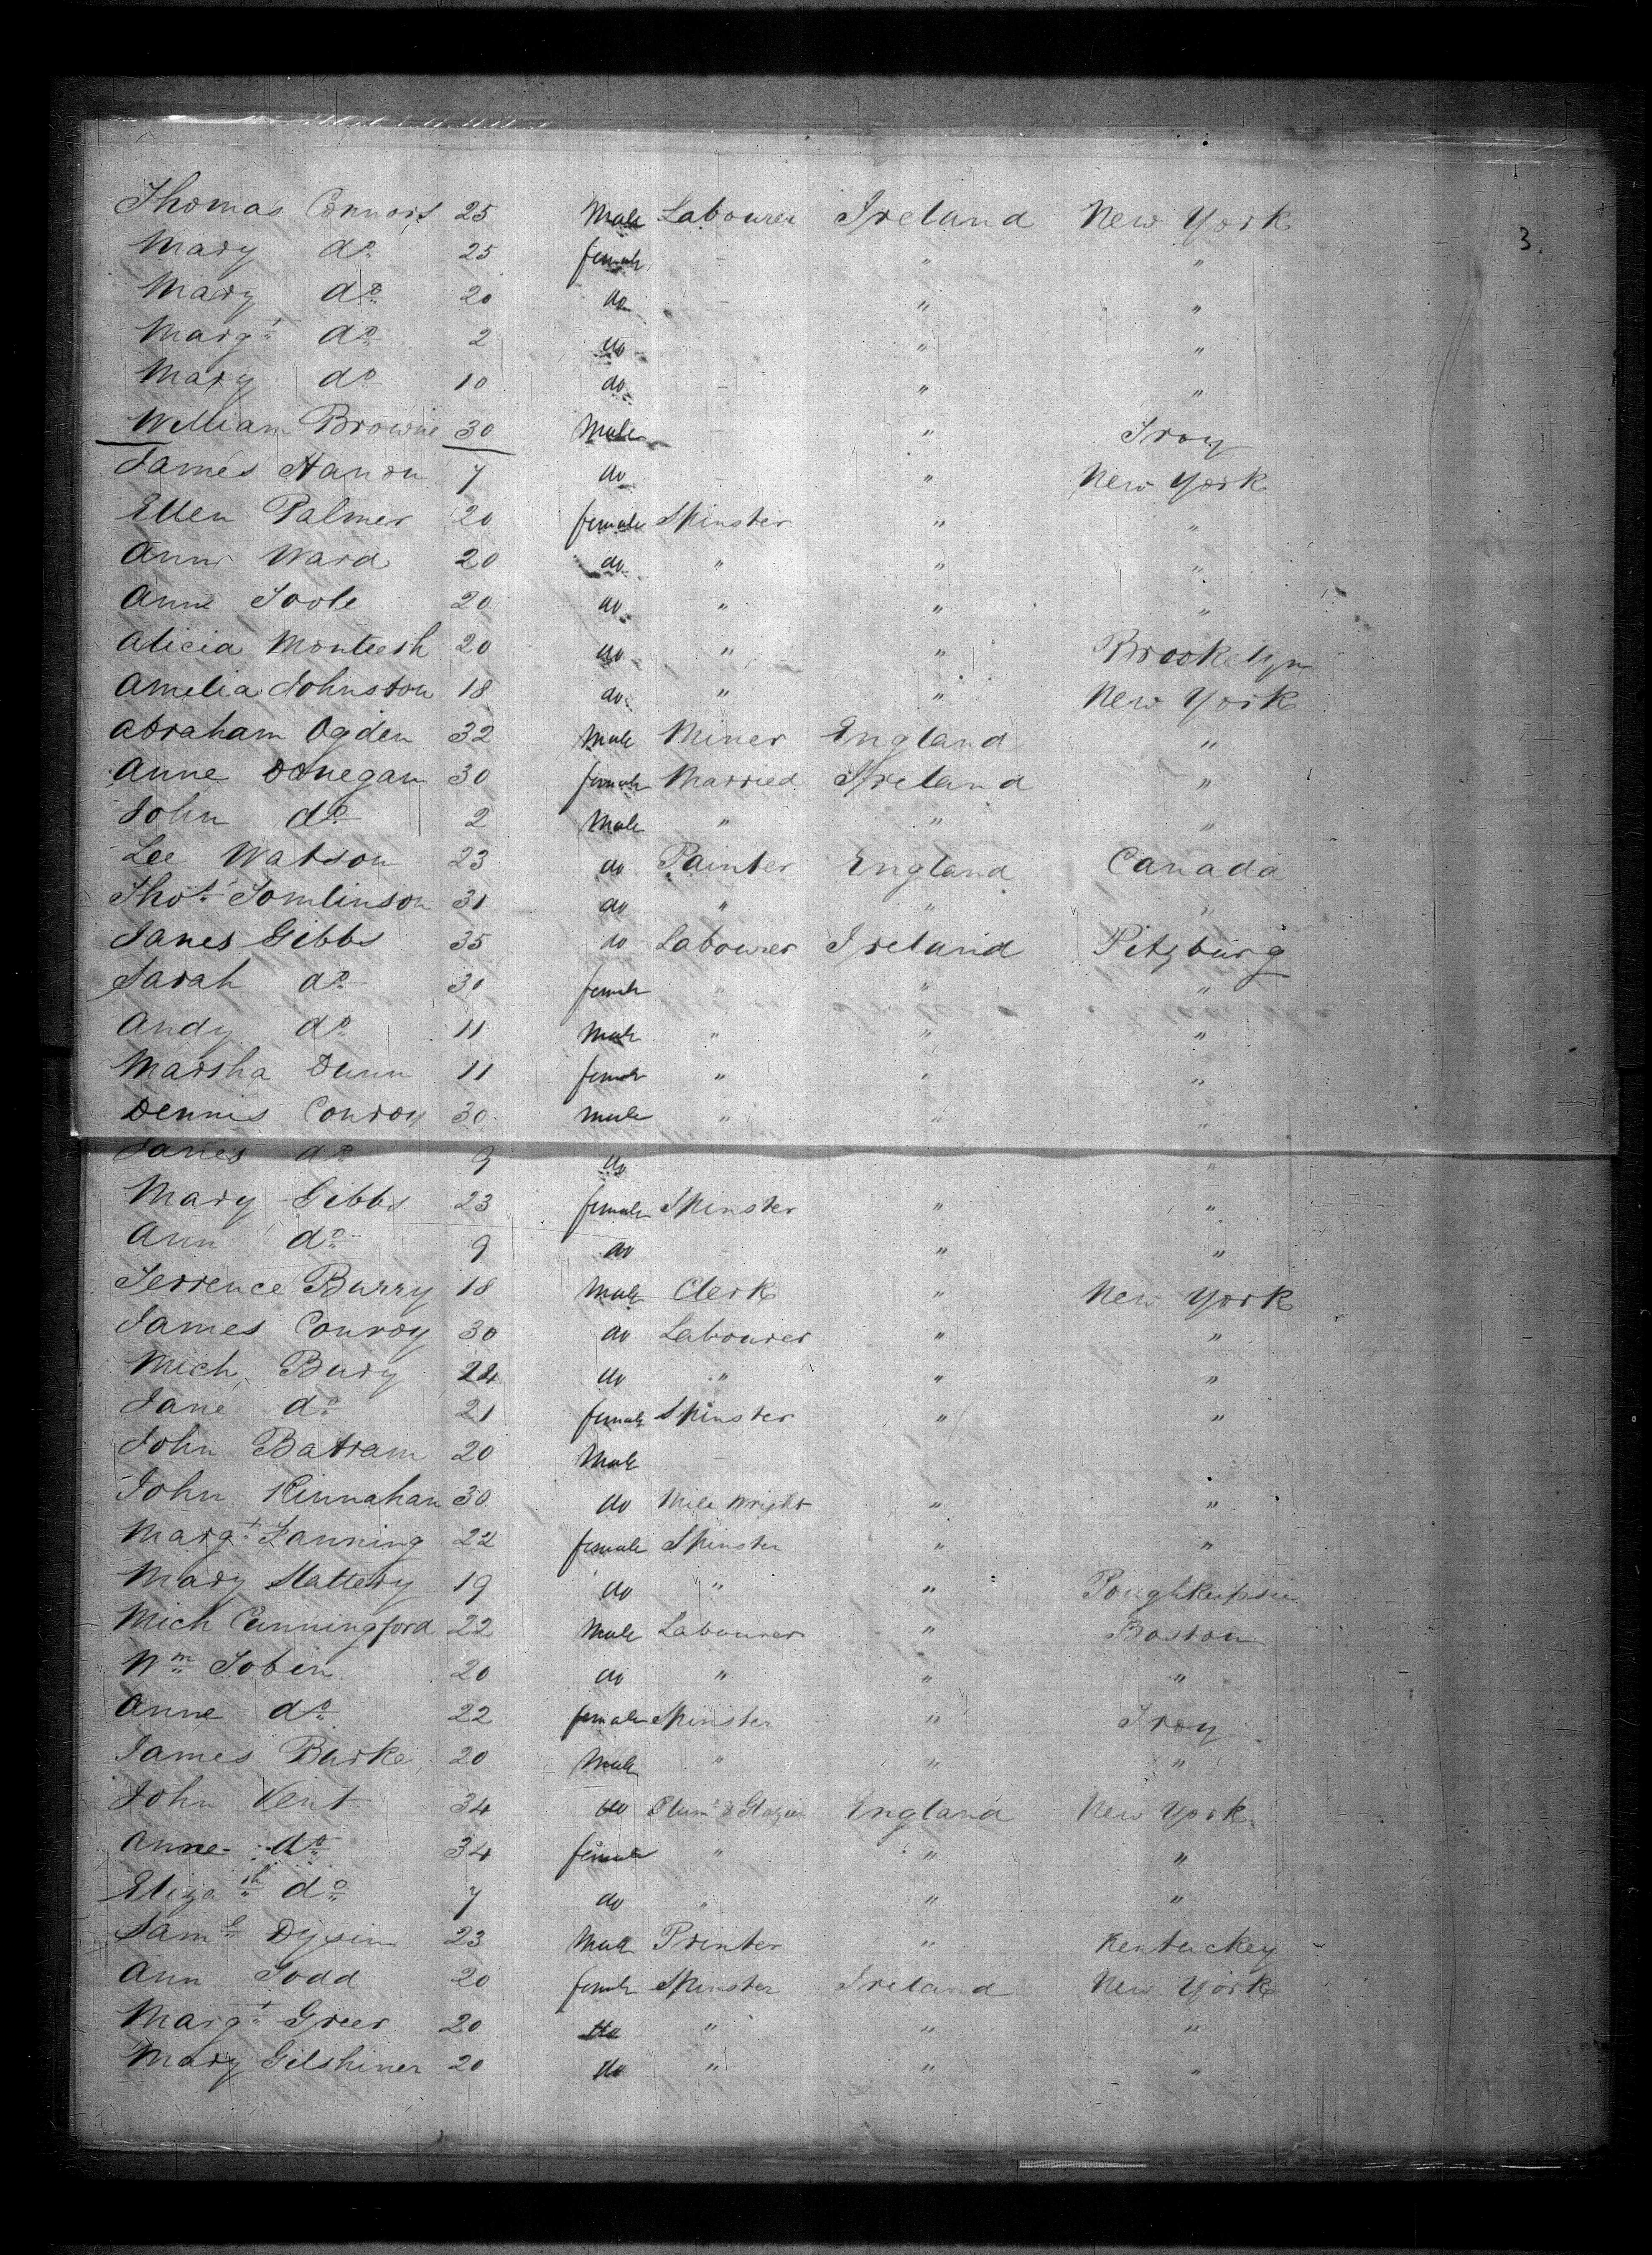 3.
Thomas Connors 25 Male Labourer Ireland New York
Mary do 25 female - " "
Mary do 20 do - " "
Margt do 2 do - " "
Mary do 10 do - " "
William Browne 30 Male - " Troy
James 7 do - " New York
Ellen Palmer 20 female Spinster " "
Ann Ward 20 do " " "
Anne Toole 20 do " " "
Alicia Monteesh 20 do " " Brookelyn
Amelia Johnston 18 do " " New York
Abraham Ogden 32 Male Miner England "
Anne Donegan 30 female Married Ireland "
John do 2 Male " " "
Lee Watson 23 do Painter England Canada
Thos Tomlinson 31 do " " "
James Gibbs 35 do Labourer Ireland Pitzburg
Sarah do 30 female " " "
Andy do 11 Male " " "
Marsha Dunn 11 female " " "
Dennis Conroy 30 male " " "
James do 9 do "
Mary Gibbs 23 female Spinster " "
Ann do 9 do - " "
Terrence Burry 18 Male Clerk " New York
James Conroy 30 do Labourer " "
Mich Bury 24 do " " "
Jane do 21 female Spinster " "
John Batram 20 Male -
John Kinnahan 30 do Mill Wright " "
Margt Fanning 22 female Spinster " "
Mary Slattery 19 do " " Poughkeepsie
Mich Cunningford 22 Male Labourer " Boston
Wm Tobin 20 do " " "
Anne do 22 female Spinster " Troy
James Burke 20 Male " " "
John Kent 34 do Plumr & Glazier England New York
Anne do 34 female " " "
Elizath do 7 do " " "
Saml 23 Male Printer " Kentuckey
Ann Todd 20 female Spinster Ireland New York
Margt Greer 20 do " " "
Mary Gilshiner 20 do " " "